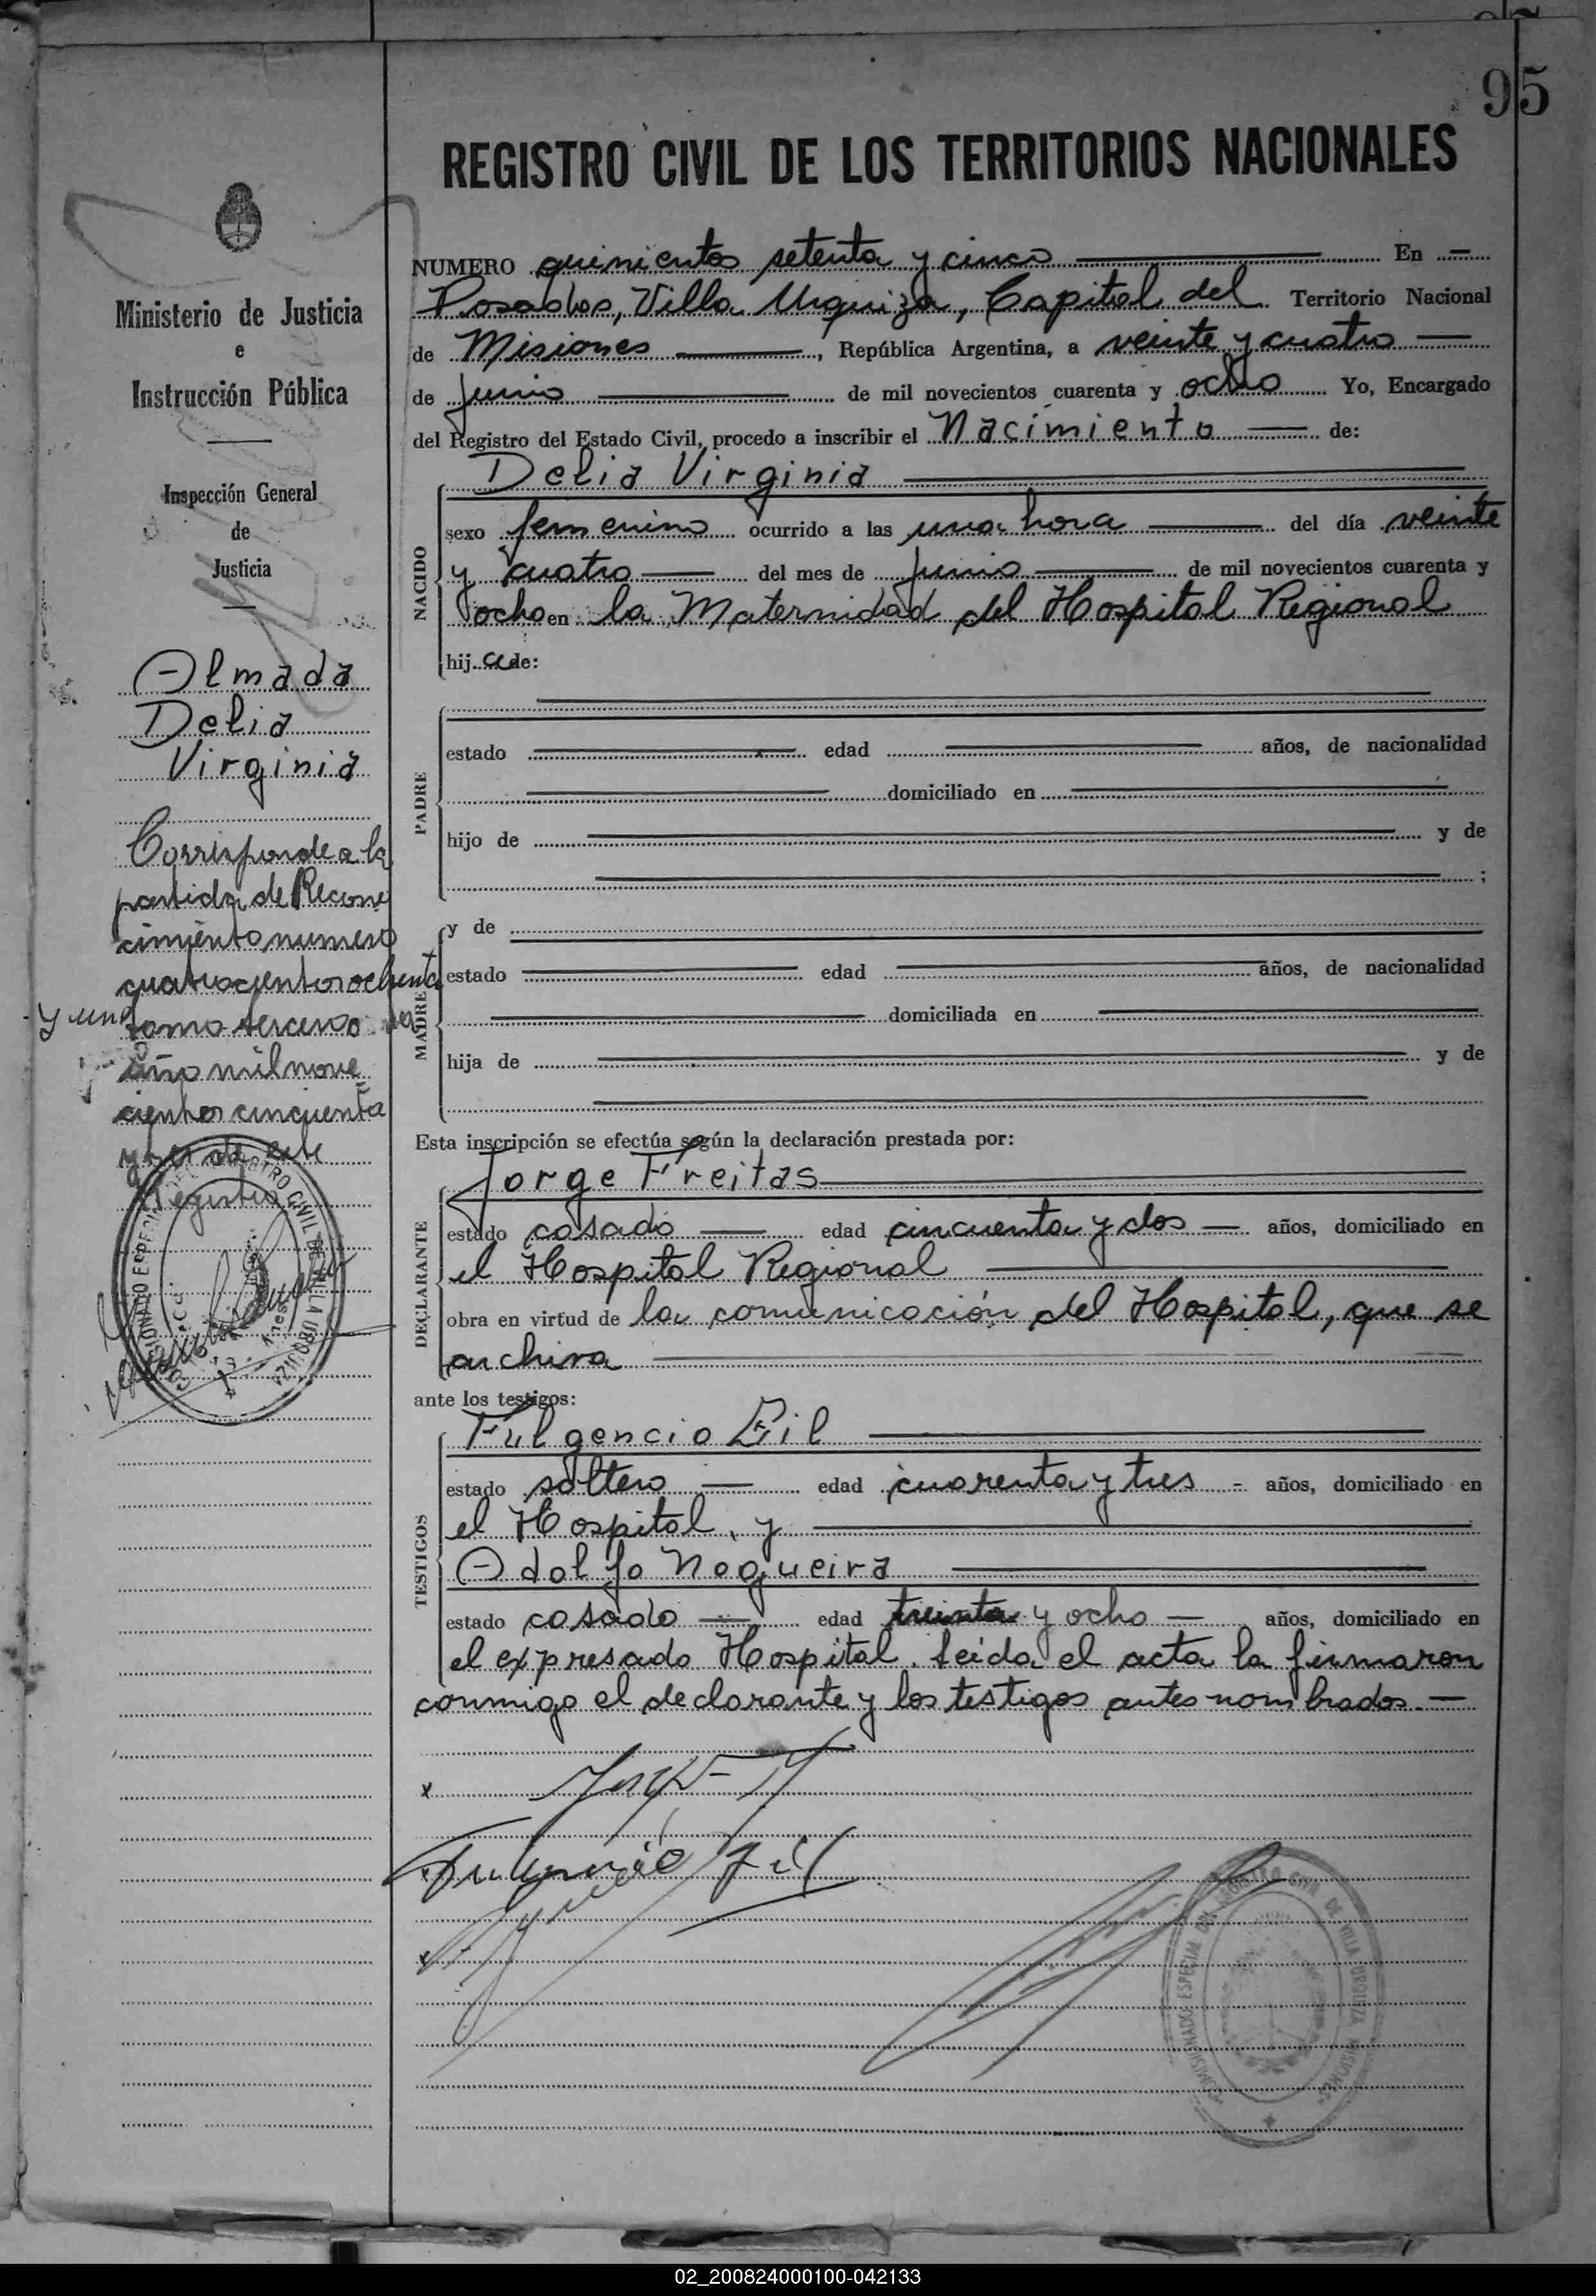 95
REGISTRO CIVIL DE LOS TERRITORIOS NACIONALES
Ministerio de Justicia
e
Instrucción Pública
Inspección General
de
Justicia
Olmada
Delia
Virginia
Corresponde a la
partida de Recono
cimiento numero
cuatrocientos ochenta
y uno tomo tercero
año mil nove
cientos cincuenta
y de este
Registro
NUMERO quinientos setenta y cinco En
Posadas, Villa Urquiza, Capital del Territorio Nacional
de Misiones, República Argentina, a veinte y cuatro
de junio de mil novecientos cuarenta y ocho Yo, Encargado
del Registro del Estado Civil, procedo a inscribir el Nacimiento de:
NACIDO
Delia Virginia
sexo femenino ocurrido a las una hora del día veinte
y cuatro del mes de junio de mil novecientos cuarenta y
ocho en la Maternidad del Hospital Regional
hija de:
PADRE
estado edad años, de nacionalidad
domiciliado en
hijo de y de
;
MADRE
y de
estado edad años, de nacionalidad
domiciliada en
hija de y de
Esta inscripción se efectúa según la declaración prestada por:
DECLARANTE
Jorge Freitas
estado casado edad cincuenta y dos años, domiciliado en
el Hospital Regional
obra en virtud de la comunicación del Hospital, que se
archiva
ante los testigos:
TESTIGOS
Fulgencio Gil
estado soltero edad cuarenta y tres - años, domiciliado en
el Hospital, y
Adolfo Nogueira
estado casado edad treinta y ocho años, domiciliado en
el expresado Hospital. Leída el acta la firmaron
conmigo el declarante y los testigos antes nombrados.
Fulgencio Gil
COMISIONADO ESPECIAL DEL REGISTRO CIVIL DE VILLA URQUIZA MISIONES
02_200824000100-042133